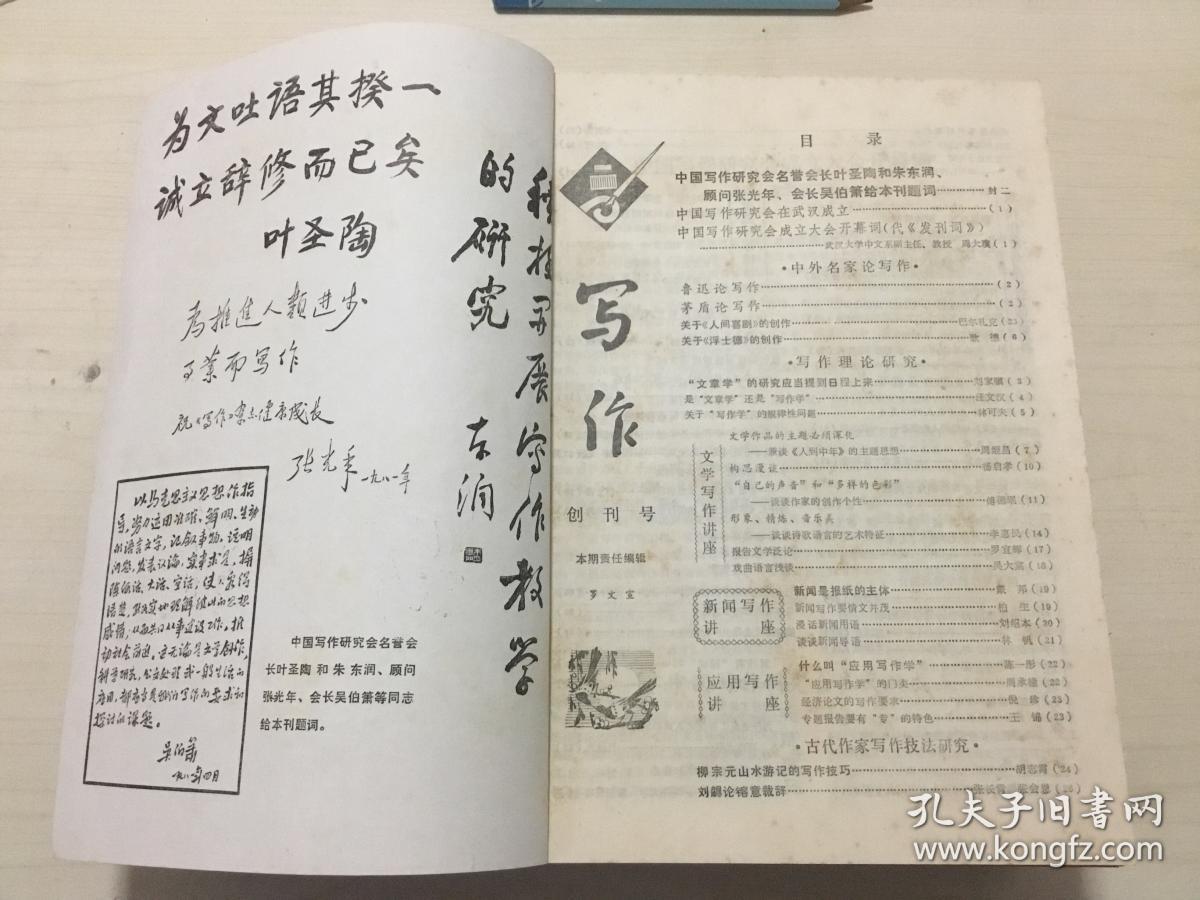 为文吐语其揆一
诚立辞修而已矣
叶圣陶
为推进人类进步
事业而写作
祝《写作》杂志健康成长
张光年 一九八一年
积极开展写作教学
的研究
东润
以马克思主义思想作指
导，努力运用准确、鲜明、生动
的语言文字，记叙事物，说明
问题，发表议论，实事求是，摒
除假话、大话、空话，使人家得
感情，从而共同从事建设工作，推
动社会前进。
科学研究，
探讨的课题。
吴伯箫
一九八一年四月
中国写作研究会名誉会
长叶圣陶和朱东润、顾问
张光年、会长吴伯箫等同志
给本刊题词。
写作
创刊号
本期责任编辑
罗文宣
目录
中国写作研究会名誉会长叶圣陶和朱东润、
顾问张光年、会长吴伯箫给本刊题词…………封二
中国写作研究会在武汉成立…………(1)
中国写作研究会成立大会开幕词(代《发刊词》)
…………武汉大学中文系副主任、教授 周大璞(1)
·中外名家论写作·
鲁迅论写作…………(2)
茅盾论写作…………(2)
关于《人间喜剧》的创作…………巴尔扎克(23)
关于《浮士德》的创作…………歌德(6)
·写作理论研究·
“文章学”的研究应当提到日程上来…………刘家骥(3)
是“文章学”还是“写作学”…………汪文汉(4)
关于“写作学”的规律性问题…………林可夫(5)
文学写作讲座
文学作品的主题必须深化
——兼谈《人到中年》的主题思想…………周姬昌(7)
构思漫谈…………潘启孝(10)
“自己的声音”和“多样的色彩”
——谈谈作家的创作个性…………(11)
形象、精炼、音乐美
——谈谈诗歌语言的艺术特征…………李惠民(14)
报告文学泛论…………罗宜辉(17)
戏曲语言浅谈…………吴大(18)
新闻写作
讲座
新闻是报纸的主体…………戴邦(19)
新闻写作要情文并茂…………柏生(19)
漫话新闻用语…………刘绍本(20)
谈谈新闻导语…………林帆(21)
应用写作
讲座
什么叫“应用写作学”…………陈一彤(22)
“应用写作学”的门类…………周承穗(22)
经济论文的写作要求…………倪珍(23)
专题报告要有“专”的特色…………王锦(23)
·古代作家写作技法研究·
柳宗元山水游记的写作技巧…………胡志霄(24)
刘勰论镕意裁辞…………张长青 张会恩(26)
孔夫子旧书网
www.kongfz.com